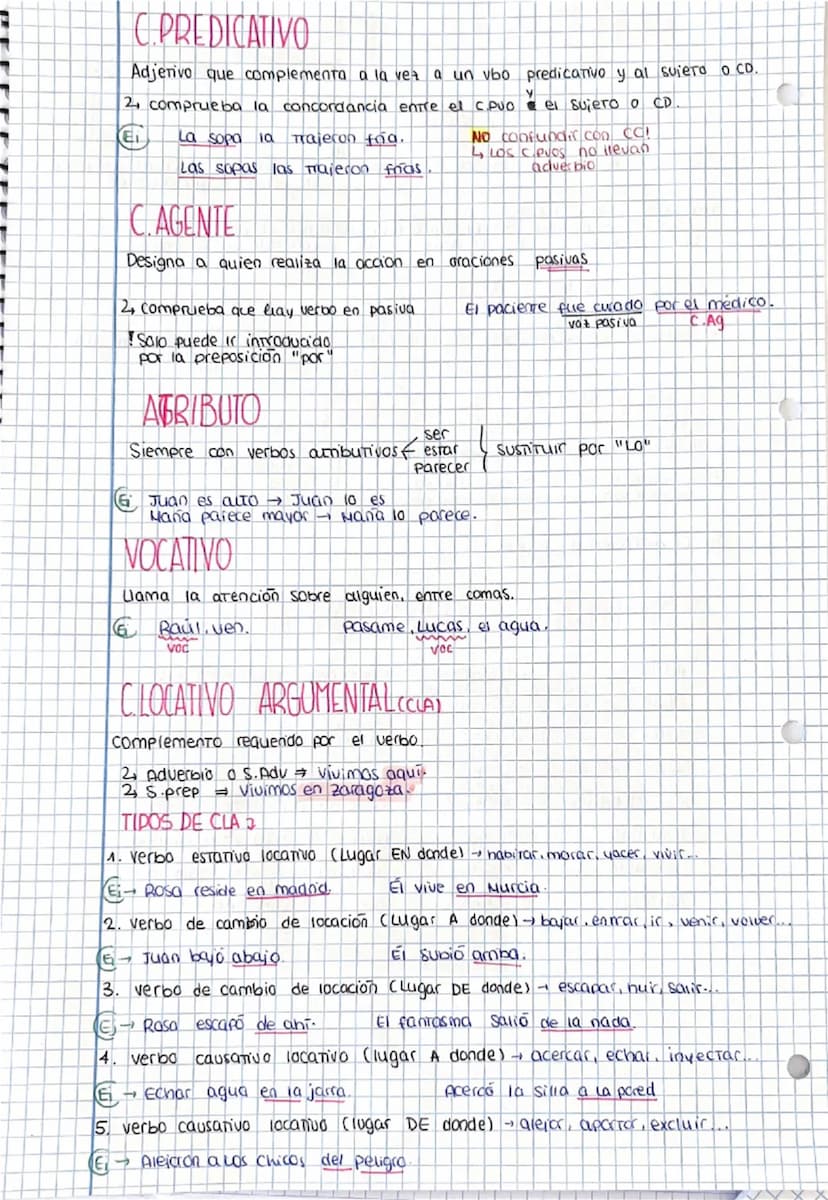 C.PREDICATIVO
Adjetivo que complementa a la vez a un vbo predicativo y al sujeto o CD.
↳ comprueba la concordancia entre el C.PVO y el sujeto o CD.
Ej La sopa la trajeron fría.
NO confundir con CC!
Las sopas las trajeron frías.
↳ Los C.pvos no llevan
adverbio
C.AGENTE
Designa a quien realiza la acción en oraciones pasivas
↳ comprueba que hay verbo en pasiva
El paciente fue curado por el médico.
voz pasiva C.Ag
! Solo puede ir introducido
por la preposición "por"
ATRIBUTO
Siempre con verbos atributivos
ser
estar
parecer
sustituir por "LO"
Ej Juan es alto → Juan lo es
María parece mayor → María lo parece.
VOCATIVO
Llama la atención sobre alguien, entre comas.
Ej Raúl, ven. Pasame, Lucas, el agua.
VOC VOC
C.LOCATIVO ARGUMENTAL (CLA)
Complemento requerido por el verbo.
↳ Adverbio o S.Adv ⇒ Vivimos aquí.
↳ S.prep ⇒ Vivimos en Zaragoza.
TIPOS DE CLA
1. Verbo estativo locativo (Lugar EN donde) → habitar, morar, yacer, vivir...
Ej → Rosa reside en madrid. Él vive en Murcia.
2. Verbo de cambio de locación (Lugar A donde) → bajar, entrar, ir, venir, volver...
Ej → Juan bajó abajo. Él subió arriba.
3. verbo de cambio de locación (Lugar DE donde) → escapar, huir, salir...
Ej → Rosa escapó de ahí. El fantasma salió de la nada.
4. verbo causativo locativo (lugar A donde) → acercar, echar, inyectar...
Ej → Echar agua en la jarra. Acercó la silla a la pared
5. verbo causativo locativo (lugar DE donde) → alejar, apartar, excluir...
Ej → Alejaron a los chicos del peligro.